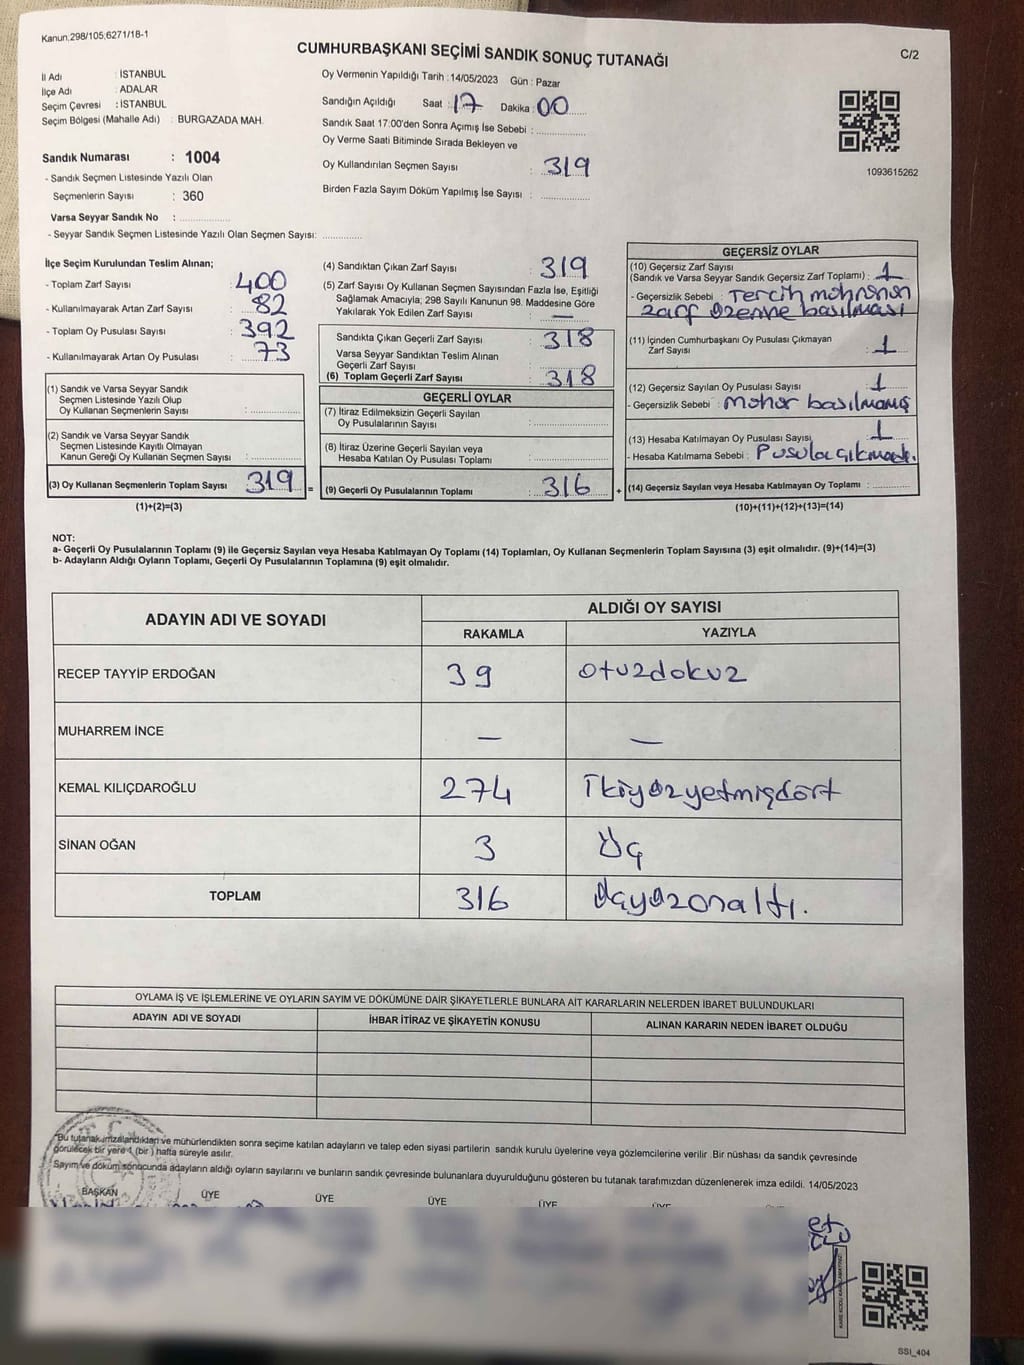 Kanun:298/105,6271/18-1
CUMHURBAŞKANI SEÇİMİ SANDIK SONUÇ TUTANAĞI
C/2
İl Adı : İSTANBUL
İlçe Adı : ADALAR
Seçim Çevresi : İSTANBUL
Seçim Bölgesi (Mahalle Adı) : BURGAZADA MAH.
Oy Vermenin Yapıldığı Tarih : 14/05/2023 Gün : Pazar
Sandığın Açıldığı Saat : 17 Dakika : 00
Sandık Saat 17:00'den Sonra Açımış İse Sebebi :
Oy Verme Saati Bitiminde Sırada Bekleyen ve
Oy Kullandırılan Seçmen Sayısı : 319
Birden Fazla Sayım Döküm Yapılmış İse Sayısı :
1093615262
Sandık Numarası : 1004
- Sandık Seçmen Listesinde Yazılı Olan
Seçmenlerin Sayısı : 360
Varsa Seyyar Sandık No :
- Seyyar Sandık Seçmen Listesinde Yazılı Olan Seçmen Sayısı:
İlçe Seçim Kurulundan Teslim Alınan;
- Toplam Zarf Sayısı : 400
- Kullanılmayarak Artan Zarf Sayısı : 82
- Toplam Oy Pusulası Sayısı : 392
- Kullanılmayarak Artan Oy Pusulası : 73
(1) Sandık ve Varsa Seyyar Sandık
Seçmen Listesinde Yazılı Olup
Oy Kullanan Seçmenlerin Sayısı :
(2) Sandık ve Varsa Seyyar Sandık
Seçmen Listesinde Kayıtlı Olmayan
Kanun Gereği Oy Kullanan Seçmen Sayısı :
(3) Oy Kullanan Seçmenlerin Toplam Sayısı 319 =
(1)+(2)=(3)
(4) Sandıktan Çıkan Zarf Sayısı : 319
(5) Zarf Sayısı Oy Kullanan Seçmen Sayısından Fazla İse, Eşitliği
Sağlamak Amacıyla; 298 Sayılı Kanunun 98. Maddesine Göre
Yakılarak Yok Edilen Zarf Sayısı : —
Sandıkta Çıkan Geçerli Zarf Sayısı : 318
Varsa Seyyar Sandıktan Teslim Alınan
Geçerli Zarf Sayısı
(6) Toplam Geçerli Zarf Sayısı : 318
GEÇERLİ OYLAR
(7) İtiraz Edilmeksizin Geçerli Sayılan
Oy Pusulalarının Sayısı :
(8) İtiraz Üzerine Geçerli Sayılan veya
Hesaba Katılan Oy Pusulası Toplamı :
(9) Geçerli Oy Pusulalarının Toplamı : 316 +
GEÇERSİZ OYLAR
(10) Geçersiz Zarf Sayısı
(Sandık ve Varsa Seyyar Sandık Geçersiz Zarf Toplamı) : 1
- Geçersizlik Sebebi : Tercih mührünün
zarf üzerine basılması
(11) İçinden Cumhurbaşkanı Oy Pusulası Çıkmayan
Zarf Sayısı : 1
(12) Geçersiz Sayılan Oy Pusulası Sayısı : 1
- Geçersizlik Sebebi : mühür basılmamış
(13) Hesaba Katılmayan Oy Pusulası Sayısı : 1
- Hesaba Katılmama Sebebi : Pusula çıkmadı.
(14) Geçersiz Sayılan veya Hesaba Katılmayan Oy Toplamı :
(10)+(11)+(12)+(13)=(14)
NOT:
a- Geçerli Oy Pusulalarının Toplamı (9) ile Geçersiz Sayılan veya Hesaba Katılmayan Oy Toplamı (14) Toplamları, Oy Kullanan Seçmenlerin Toplam Sayısına (3) eşit olmalıdır. (9)+(14)=(3)
b- Adayların Aldığı Oyların Toplamı, Geçerli Oy Pusulalarının Toplamına (9) eşit olmalıdır.
ADAYIN ADI VE SOYADI
ALDIĞI OY SAYISI
RAKAMLA YAZIYLA
RECEP TAYYİP ERDOĞAN 39 otuzdokuz
MUHARREM İNCE — —
KEMAL KILIÇDAROĞLU 274 İkiyüzyetmişdört
SİNAN OĞAN 3 Üç
TOPLAM 316 üçyüzonaltı.
OYLAMA İŞ VE İŞLEMLERİNE VE OYLARIN SAYIM VE DÖKÜMÜNE DAİR ŞİKAYETLERLE BUNLARA AİT KARARLARIN NELERDEN İBARET BULUNDUKLARI
ADAYIN ADI VE SOYADI İHBAR İTİRAZ VE ŞİKAYETİN KONUSU ALINAN KARARIN NEDEN İBARET OLDUĞU
"Bu tutanak imzalandıktan ve mühürlendikten sonra seçime katılan adayların ve talep eden siyasi partilerin sandık kurulu üyelerine veya gözlemcilerine verilir. Bir nüshası da sandık çevresinde
görülecek bir yere 1 (bir) hafta süreyle asılır.
Sayım ve döküm sonucunda adayların aldığı oyların sayılarını ve bunların sandık çevresinde bulunanlara duyurulduğunu gösteren bu tutanak tarafımızdan düzenlenerek imza edildi. 14/05/2023
BAŞKAN ÜYE ÜYE ÜYE ÜYE ÜYE
SSI_404